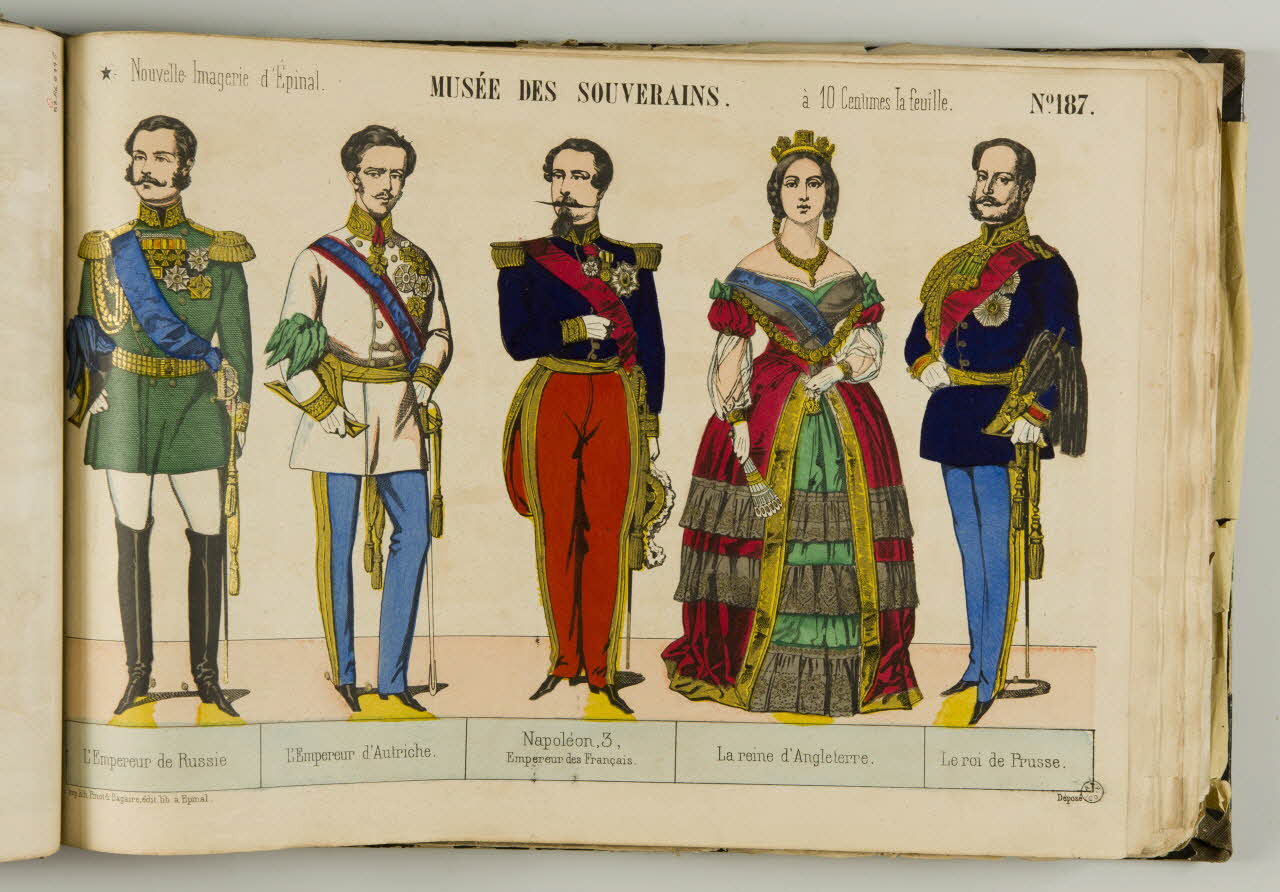 Nouvelle Imagerie d'Épinal.
MUSÉE DES SOUVERAINS.
à 10 Centimes la feuille.
Nº187.
L'Empereur de Russie
L'Empereur d'Autriche.
Napoléon,3,
Empereur des Français.
La reine d'Angleterre.
Le roi de Prusse.
lith. Pinot & Sagaire, édit. lib. à Epinal.
Déposé